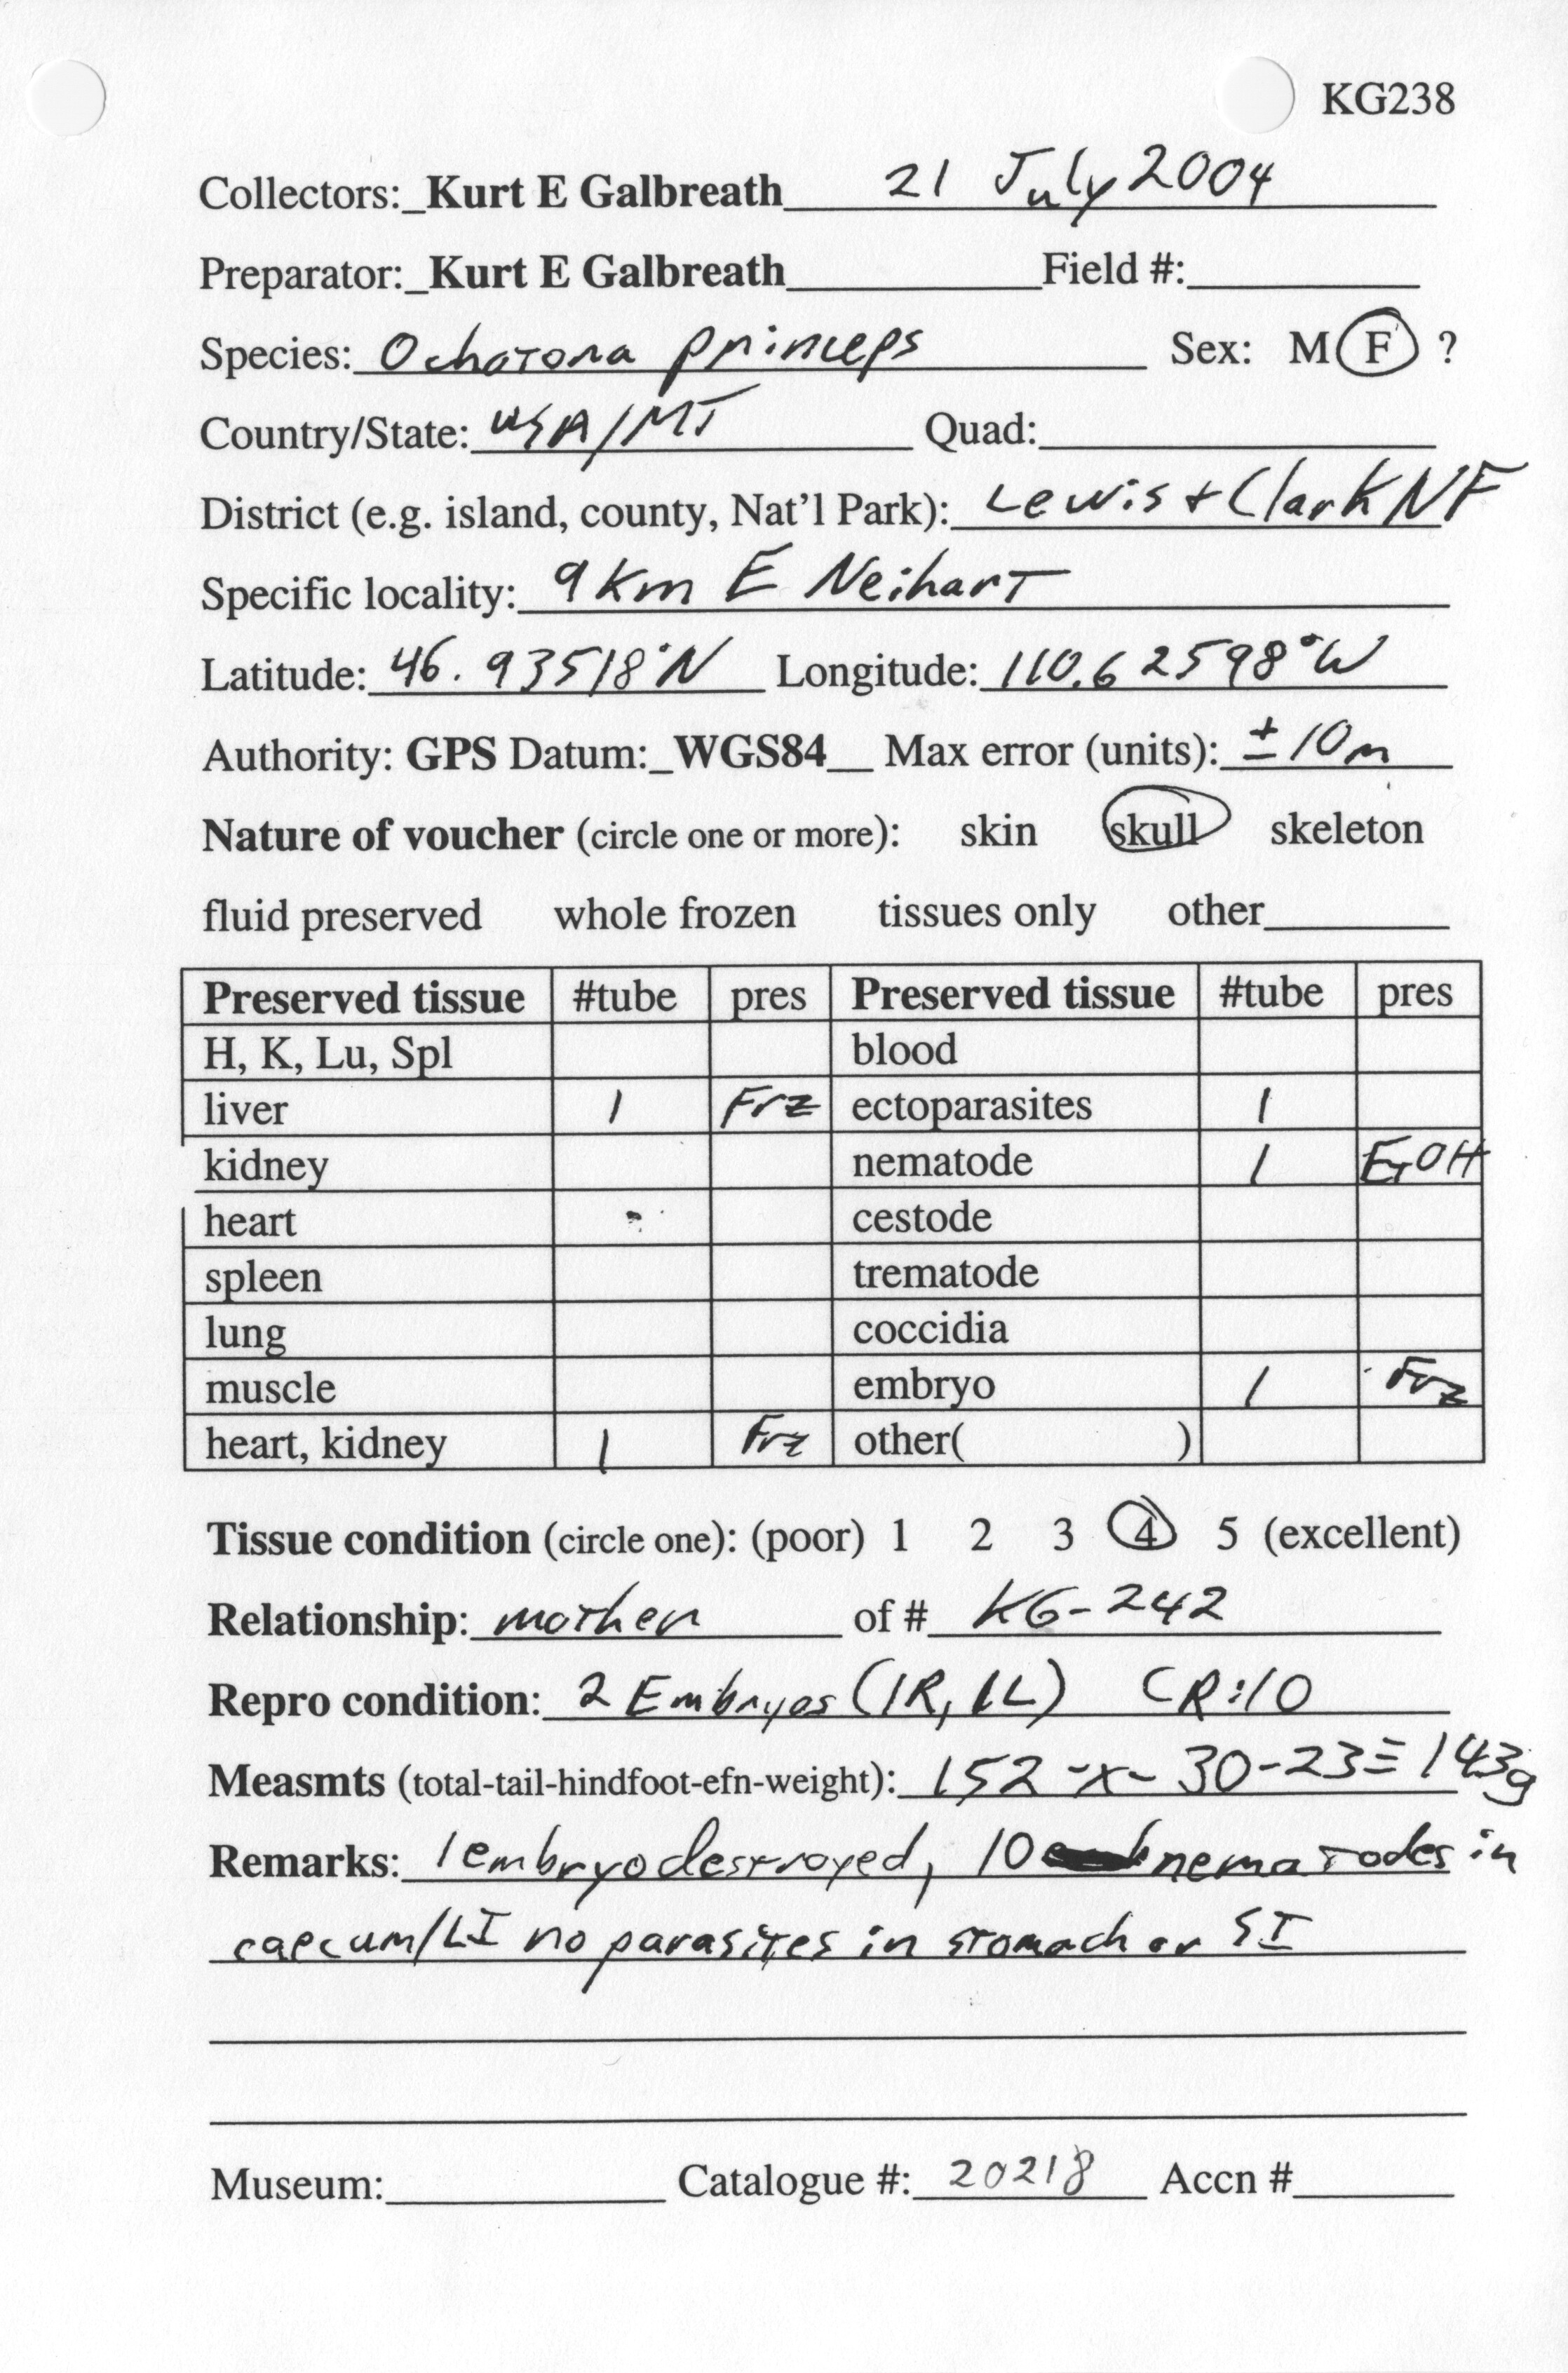 KG238
Collectors:_Kurt E Galbreath 21 July 2004
Preparator:_Kurt E Galbreath Field #:
Species: Ochotona princeps Sex: M F ?
Country/State: USA/MT Quad:
District (e.g. island, county, Nat'l Park): Lewis + Clark NF
Specific locality: 9 km E Neihart
Latitude: 46.93518°N Longitude: 110.62598°W
Authority: GPS Datum:_WGS84__ Max error (units): ±10m
Nature of voucher (circle one or more): skin skull skeleton
fluid preserved whole frozen tissues only other
Preserved tissue #tube pres Preserved tissue #tube pres
H, K, Lu, Spl blood
liver 1 Frz ectoparasites 1
kidney nematode 1 EtOH
heart cestode
spleen trematode
lung coccidia
muscle embryo 1 Frz
heart, kidney 1 Frz other( )
Tissue condition (circle one): (poor) 1 2 3 4 5 (excellent)
Relationship: mother of # KG-242
Repro condition: 2 Embryos (1R, 1L) CR:10
Measmts (total-tail-hindfoot-efn-weight): 152-x-30-23≡143g
Remarks: 1 embryo destroyed, 10 nematodes in
caecum/LI no parasites in stomach or SI
Museum: Catalogue #: 20218 Accn #